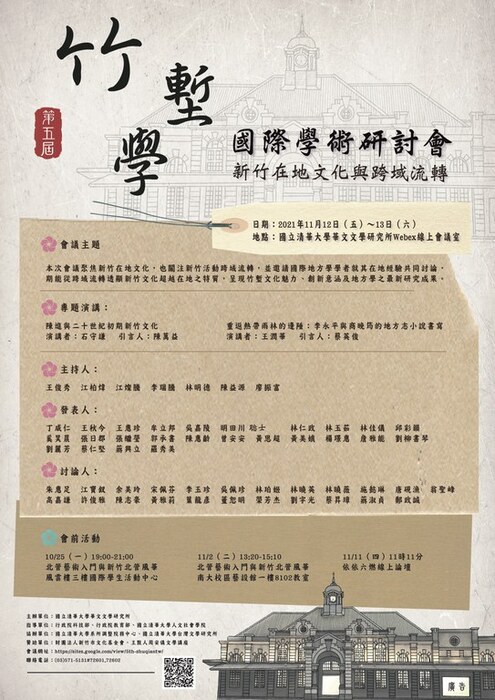 第五屆
竹塹學
國際學術研討會
新竹在地文化與跨域流轉
日期：2021年11月12日（五）～13日（六）
地點：國立清華大學華文文學研究所Webex線上會議室
會議主題
本次會議聚焦新竹在地文化，也關注新竹活動跨域流轉，並邀請國際地方學學者就其在地經驗共同討論，
期能從跨域流轉透顯新竹文化超越在地之特質，呈現竹塹文化魅力、創新意涵及地方學之最新研究成果。
專題演講：
陳進與二十世紀初期新竹文化
演講者：石守謙 引言人：陳萬益
重返熱帶雨林的邊陲：李永平與商晚筠的地方志小說書寫
演講者：王潤華 引言人：蔡英俊
主持人：
王俊秀 江柏煒 江燦騰 李瑞騰 林明德 陳益源 廖振富
發表人：
丁威仁 王秋今 王惠珍 牟立邦 吳嘉陵 明田川聡士 林仁政 林玉茹 林佳儀 邱彩韻
張日郡 張繼瑩 郭承書 陳惠齡 曾安安 黃思超 黃美娥 楊璟惠 詹雅能 劉柳書琴
劉麗芳 蔡仁堅 蘇與立 羅秀美
討論人：
朱惠足 江寶釵 余美玲 宋佩芬 李玉珍 吳佩珍 林珀姬 林曉英 林曉薇 施懿琳 唐硯漁 翁聖峰
高嘉謙 許俊雅 陳志豪 黃雅莉 葉龍彥 董恕明 榮芳杰 劉宇光 蔡昇璋 蘇淑貞 鄭政誠
會前活動
10/25（一）19:00-21:00
北管藝術入門與新竹北管風華
風雲樓三樓國際學生活動中心
11/2（二）13:20-15:10
北管藝術入門與新竹北管風華
南大校區藝設館一樓8102教室
11/11（四）11時11分
依依六燃線上論壇
主辦單位：國立清華大學華文文學研究所
指導單位：行政院科技部、行政院教育部、國立清華大學人文社會學院
協辦單位：國立清華大學系所調整院務中心、國立清華大學台灣文學研究所
會議網站：https://sites.google.com/view/5th-zhuqianstw/
聯絡電話：(03)571-5131#72601,72602
廣告